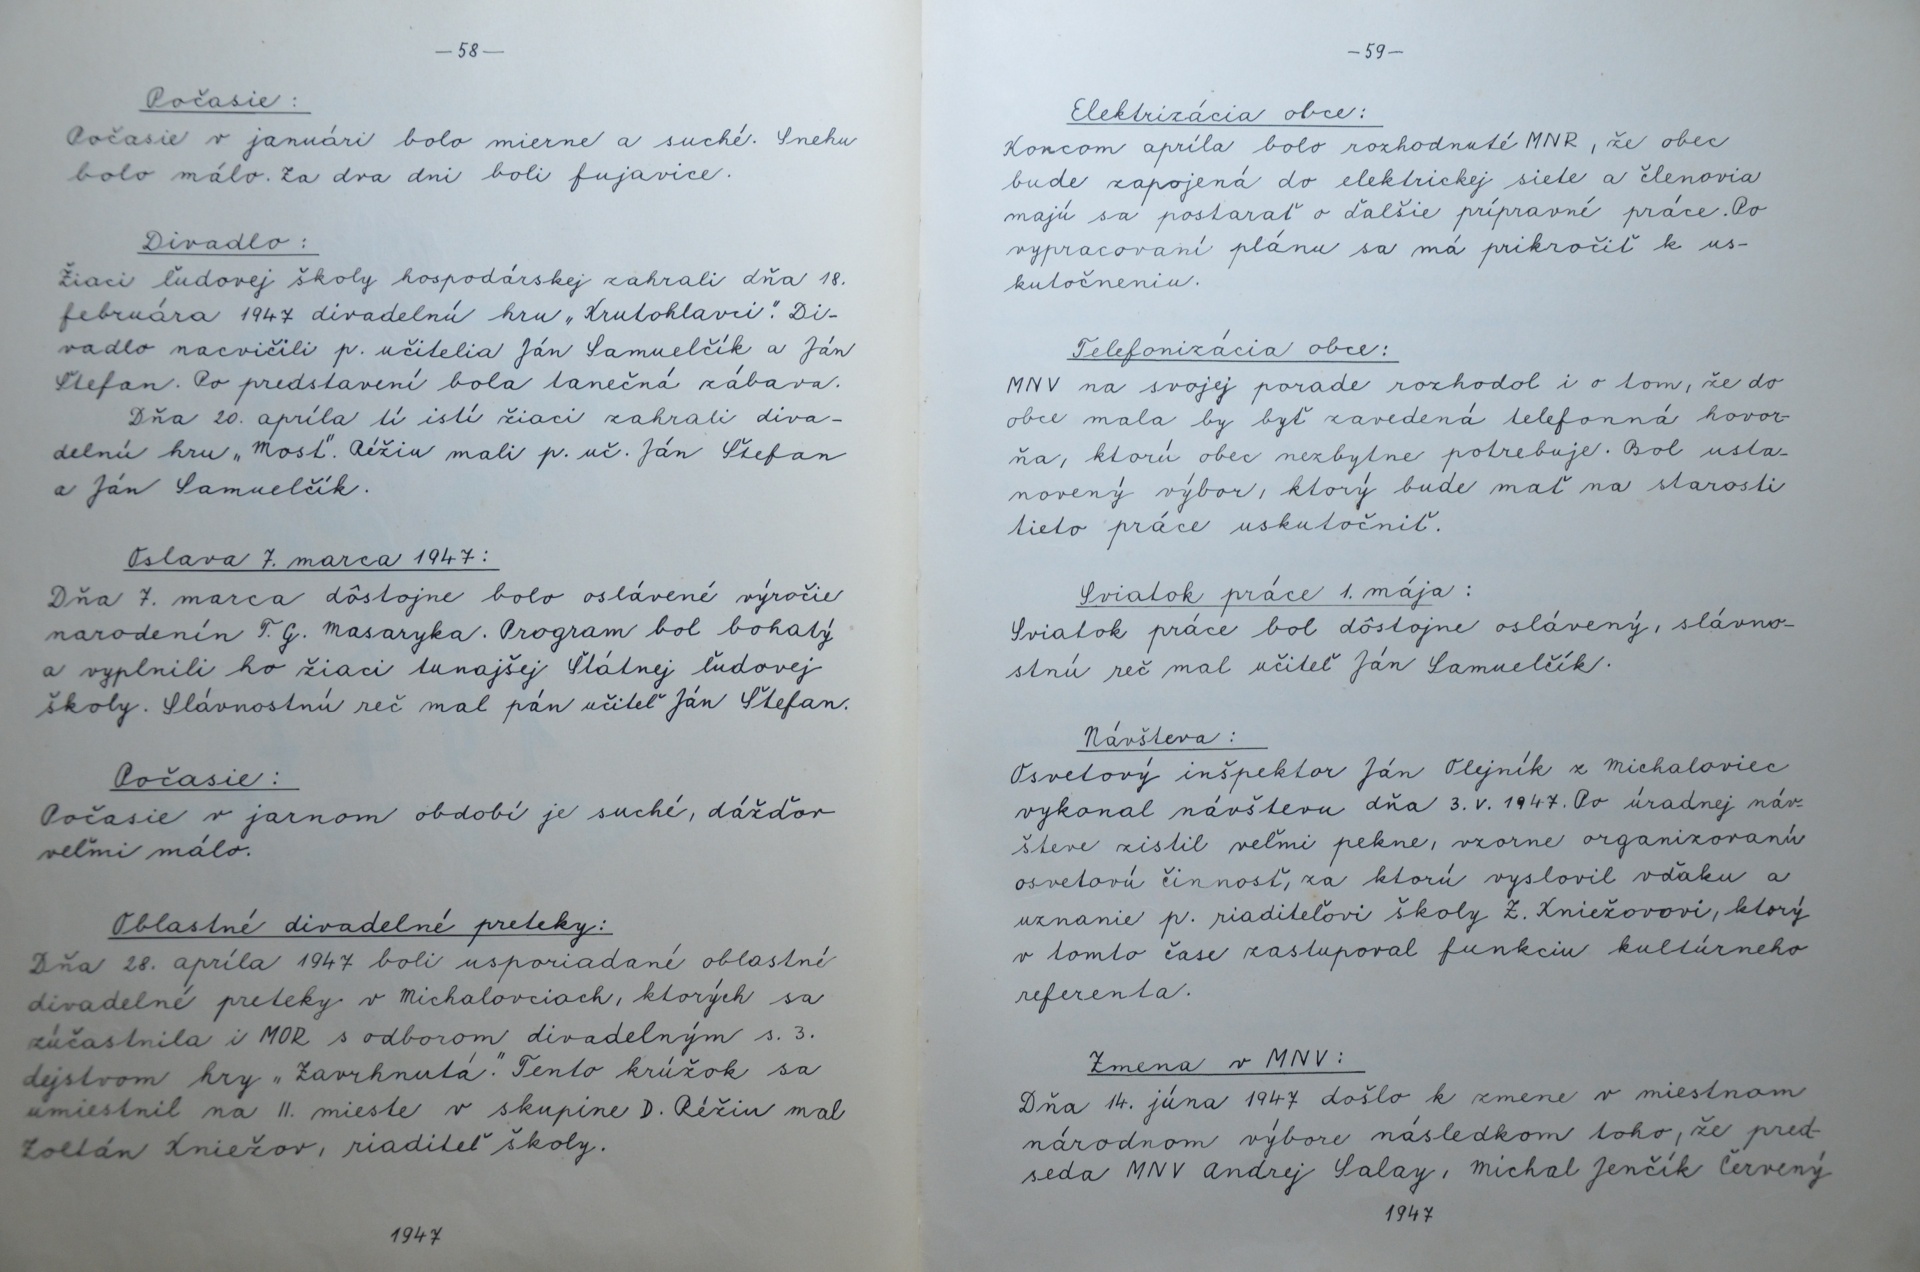 —58—
Počasie :
Počasie v januári bolo mierne a suché. Snehu
bolo málo. Za dva dni boli fujavice.
Divadlo :
Žiaci ľudovej školy hospodárskej zahrali dňa 18.
februára 1947 divadelnú hru „Krutohlavci". Di-
vadlo nacvičili p. učitelia Ján Samuelčík a Ján
Štefan. Po predstavení bola tanečná zábava.
Dňa 20. apríla tí istí žiaci zahrali diva-
delnú hru „Most". Réžiu mali p. uč. Ján Štefan
a Ján Samuelčík.
Oslava 7. marca 1947 :
Dňa 7. marca dôstojne bolo oslávené výročie
narodenín T. G. Masaryka. Program bol bohatý
a vyplnili ho žiaci tunajšej Štátnej ľudovej
školy. Slávnostnú reč mal pán učiteľ Ján Štefan.
Počasie :
Počasie v jarnom období je suché, dážďov
veľmi málo.
Oblastné divadelné preteky :
Dňa 28. apríla 1947 boli usporiadané oblastné
divadelné preteky v Michalovciach, ktorých sa
zúčastnila i MOR s odborom divadelným s. 3.
dejstvom hry „Zavrhnutá". Tento krúžok sa
umiestnil na II. mieste v skupine D. Réžiu mal
Zoltán Kniežov, riaditeľ školy.
1947
—59—
Elektrizácia obce :
Koncom apríla bolo rozhodnuté MNR, že obec
bude zapojená do elektrickej siete a členovia
majú sa postarať o ďalšie prípravné práce. Po
vypracovaní plánu sa má prikročiť k us-
kutočneniu.
Telefonizácia obce :
MNV na svojej porade rozhodol i o tom, že do
obce mala by byť zavedená telefonná hovor-
ňa, ktorú obec nezbytne potrebuje. Bol usta-
novený výbor, ktorý bude mať na starosti
tieto práce uskutočniť.
Sviatok práce 1. mája :
Sviatok práce bol dôstojne oslávený, slávno-
stnú reč mal učiteľ Ján Samuelčík.
Návšteva :
Osvetový inšpektor Ján Olejník z Michaloviec
vykonal návštevu dňa 3. V. 1947. Po úradnej náv-
števe zistil veľmi pekne, vzorne organizovanú
osvetovú činnosť, za ktorú vyslovil vďaku a
uznanie p. riaditeľovi školy Z. Kniežovovi, ktorý
v tomto čase zastupoval funkciu kultúrneho
referenta.
Zmena v MNV :
Dňa 14. júna 1947 došlo k zmene v miestnom
národnom výbore následkom toho, že pred-
seda MNV Andrej Salay, Michal Jenčík Červený
1947